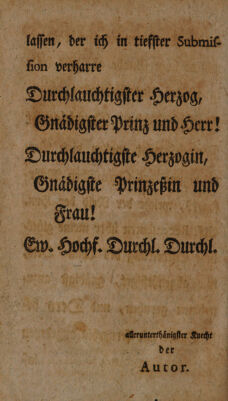 lassen, der ich in tiefster Submis-
sion verharre
Durchlauchtigster Herzog,
Gnädigster Prinz und Herr!
Durchlauchtigste Herzogin,
Gnädigste Prinzeßin und
Frau!
Ew. Hochf. Durchl. Durchl.
allerunterthänigster Knecht
der
Autor.